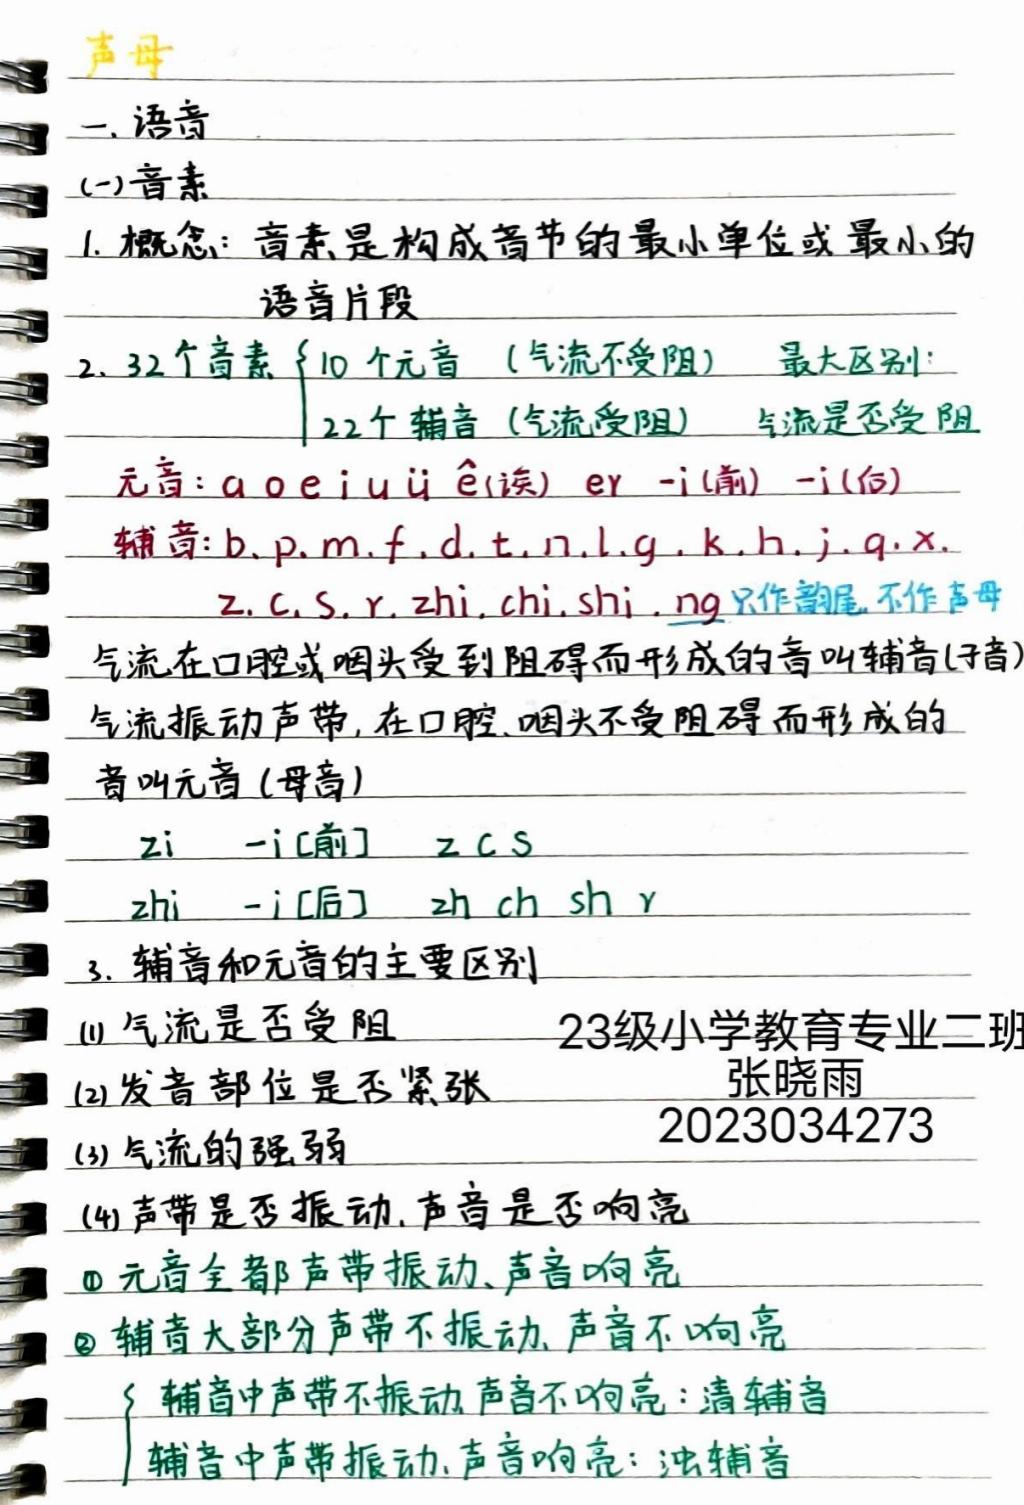 声母
一、语音
(一)音素
1. 概念: 音素是构成音节的最小单位或最小的
语音片段
2. 32个音素 { 10个元音 (气流不受阻) 最大区别:
22个辅音 (气流受阻) 气流是否受阻
元音: a o e i u ü ê(诶) er -i(前) -i(后)
辅音: b. p. m. f. d. t. n. l. g. k. h. j. q. x.
z. c. s. r. zhi. chi. shi. ng 只作韵尾,不作声母
气流在口腔或咽头受到阻碍而形成的音叫辅音(子音)
气流振动声带,在口腔、咽头不受阻碍而形成的
音叫元音(母音)
zi -i[前] z c s
zhi -i[后] zh ch sh r
3. 辅音和元音的主要区别
(1) 气流是否受阻
(2) 发音部位是否紧张
(3) 气流的强弱
(4) 声带是否振动、声音是否响亮
① 元音全都声带振动、声音响亮
② 辅音大部分声带不振动、声音不响亮
{ 辅音中声带不振动、声音不响亮: 清辅音
辅音中声带振动、声音响亮: 浊辅音
23级小学教育专业二班
张晓雨
2023034273